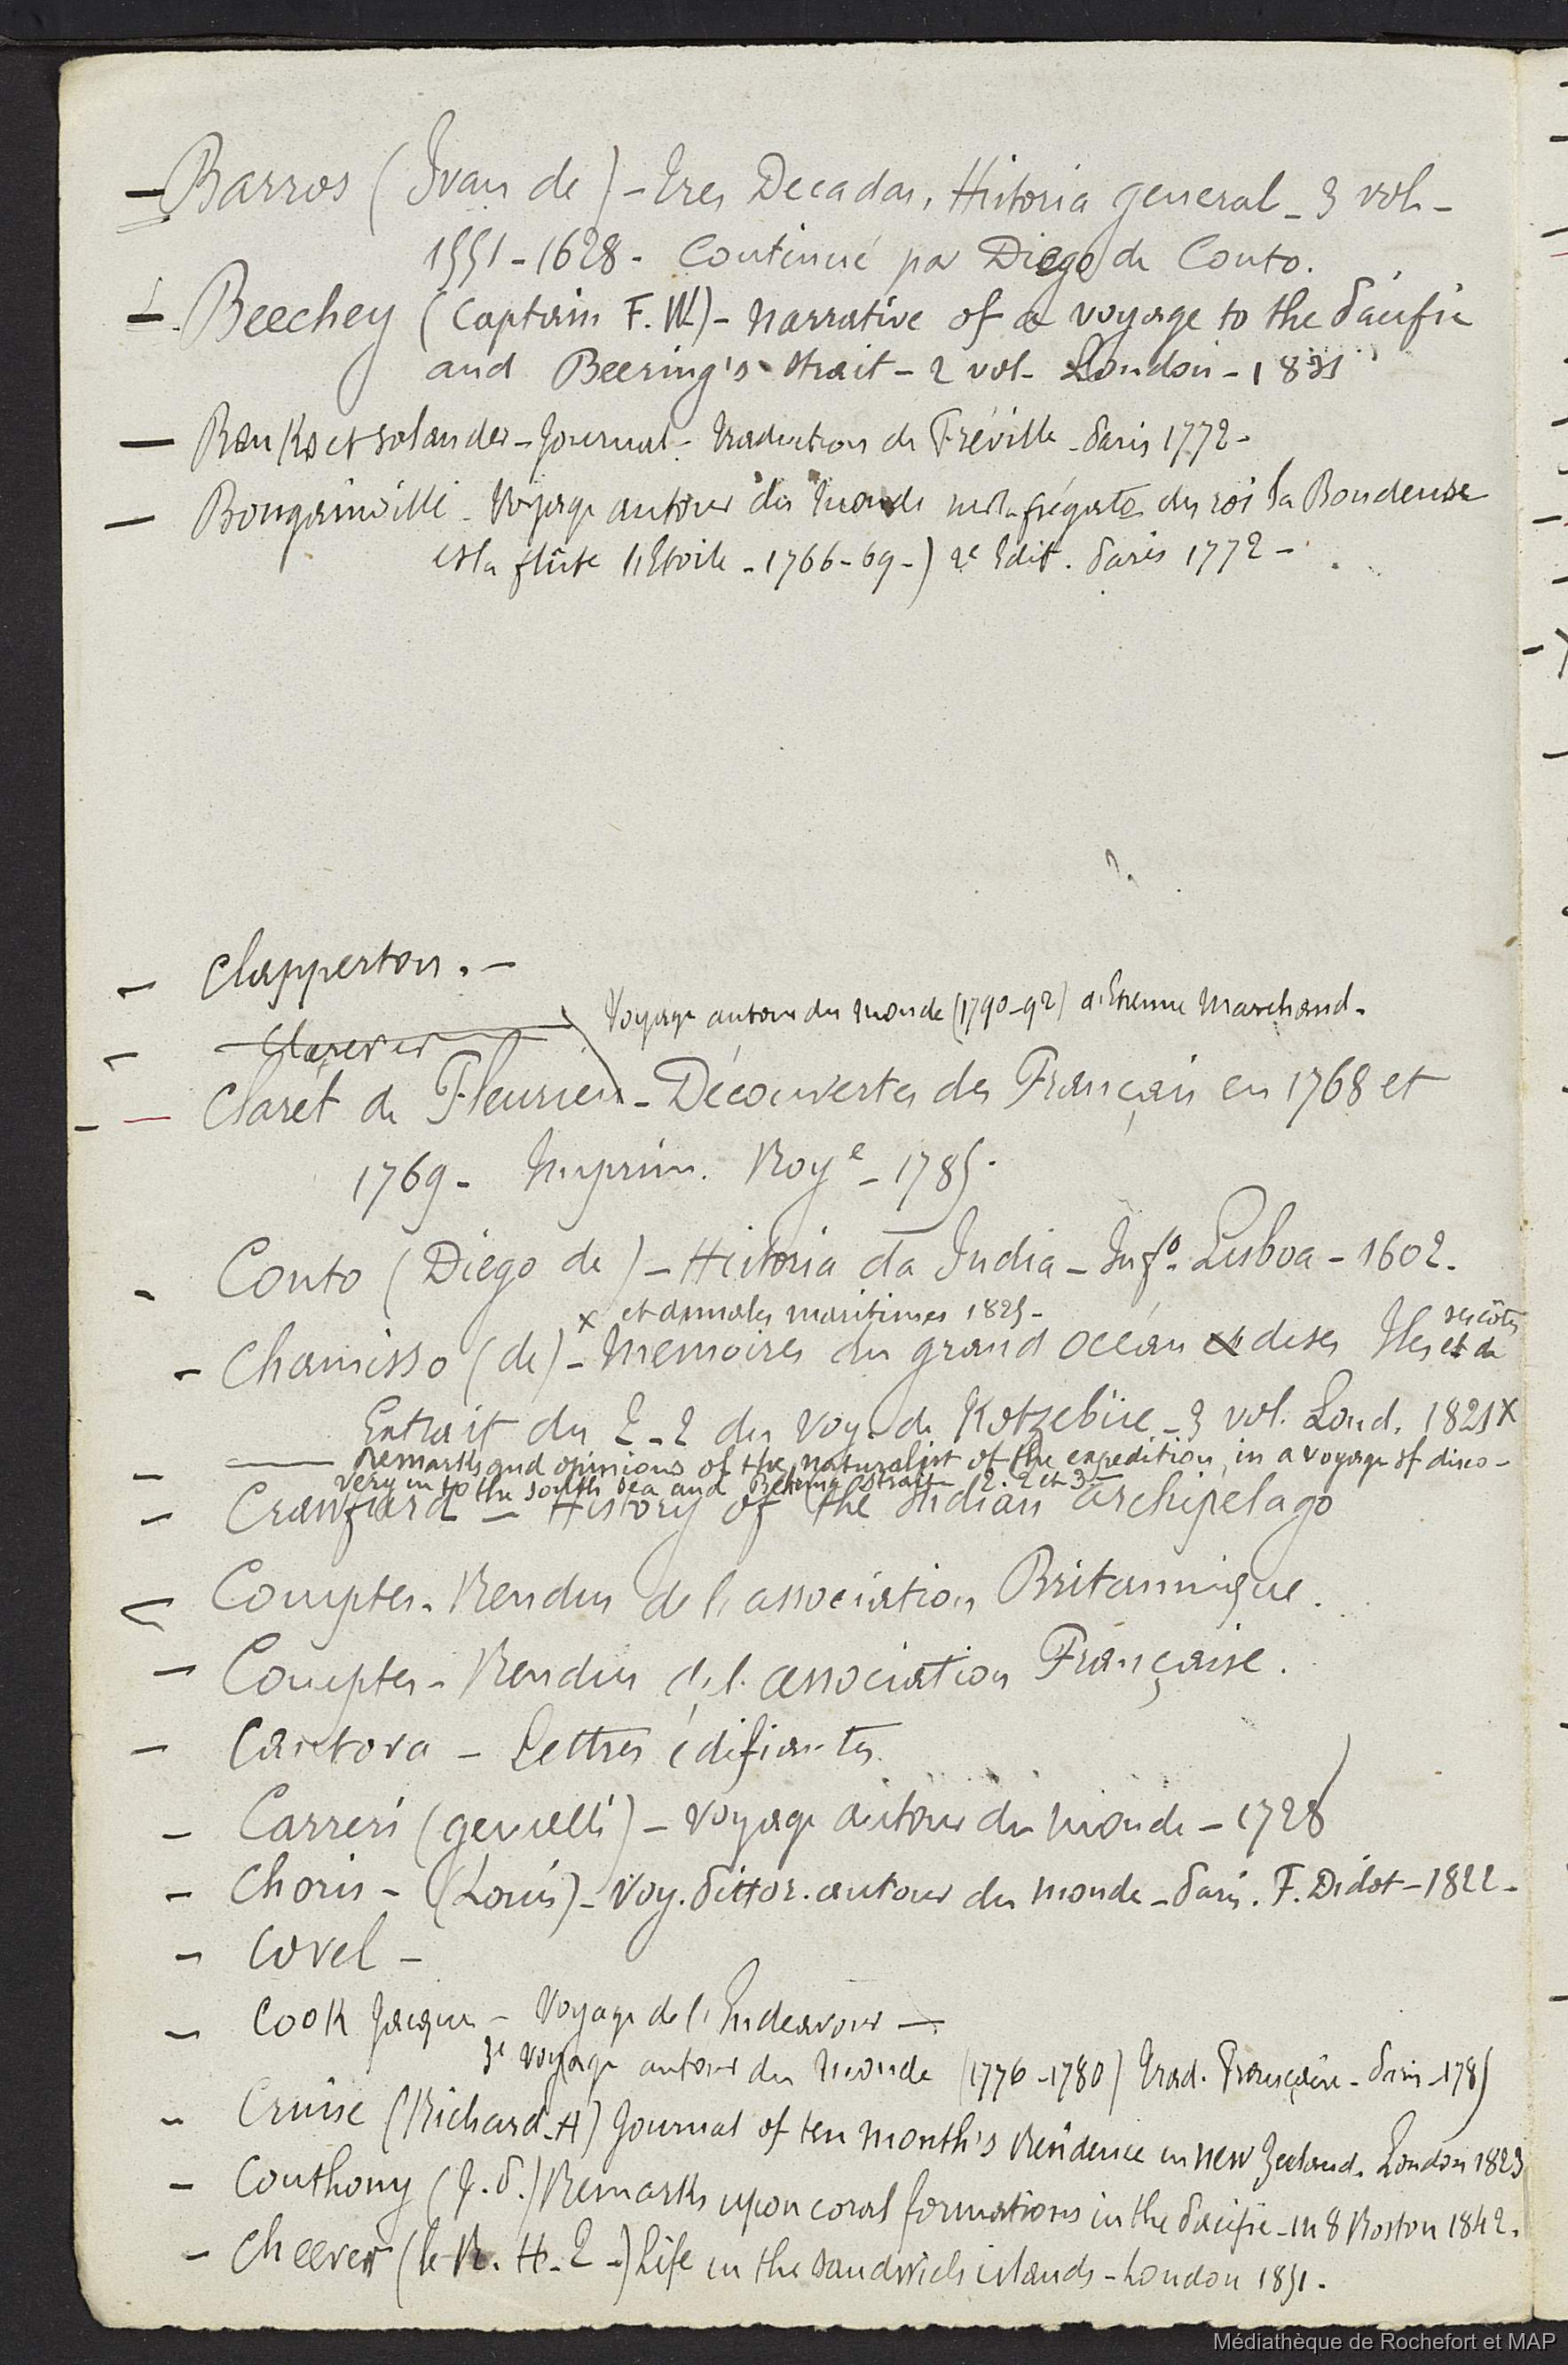 - Barros (Ivan de) - Tres Decadas, Historia general - 3 vol -
1551 - 1628 - Continué par Diego de Couto.
- Beechey (Captain F. W) - narrative of a voyage to the Pacific
and Beering's strait - 2 vol - London - 1831
- Banks et Solander - Journal - traduction de Fréville - Paris 1772 -
- Bougainville - Voyage autour du monde sur la frégate du roi la Boudeuse
et la flûte l'Etoile - 1766-69 -) 2e Edit. Paris 1772 -
- Clapperton. -
Voyage autour du monde (1790-92) d'Etienne Marchand -
-
- - Claret de Fleurieu - Découvertes des Français en 1768 et
1769 - Imprim. Roye - 1785.
- Couto (Diego de) - Historia da India - Info. Lisboa - 1602.
x et annales maritimes 1825 -
- Chamisso (de) - Memoires du grand océan de ses Iles et de ses côtes
Extrait du T. 2 du voy. de Kotzebüe - 3 vol. Lond. 1821 x
- —— Remarks and opinions of the naturalist of the expedition, in a voyage of disco-
very into the south sea and Behring strait - T. 2 et 3 -
- Crawfurd - History of the Indian archipelago
- Comptes-Rendus de l'association Britannique.
- Comptes-Rendus de l'association Française.
- Cantova - Lettres édifiantes.
- Carreri (gemelli) - Voyage autour du monde - 1728
- Choris - (Louis) - Voy. Pittor. autour du monde - Paris. F. Didot - 1822 -
- Covel -
- Cook Jacques - Voyage de l'Endeavour -.
3e voyage autour du monde (1776-1780) Trad. Française - Paris - 1785
- Cruise (Richard - A) Journal of ten month's Residence in new Zeeland. London 1823
- Couthouy (J. P.) Remarks upon coral formations in the Pacific - in 8 Boston 1842.
- Cheever (le R. H. T -) Life in the Sandwich islands - London 1851.
Médiathèque de Rochefort et MAP